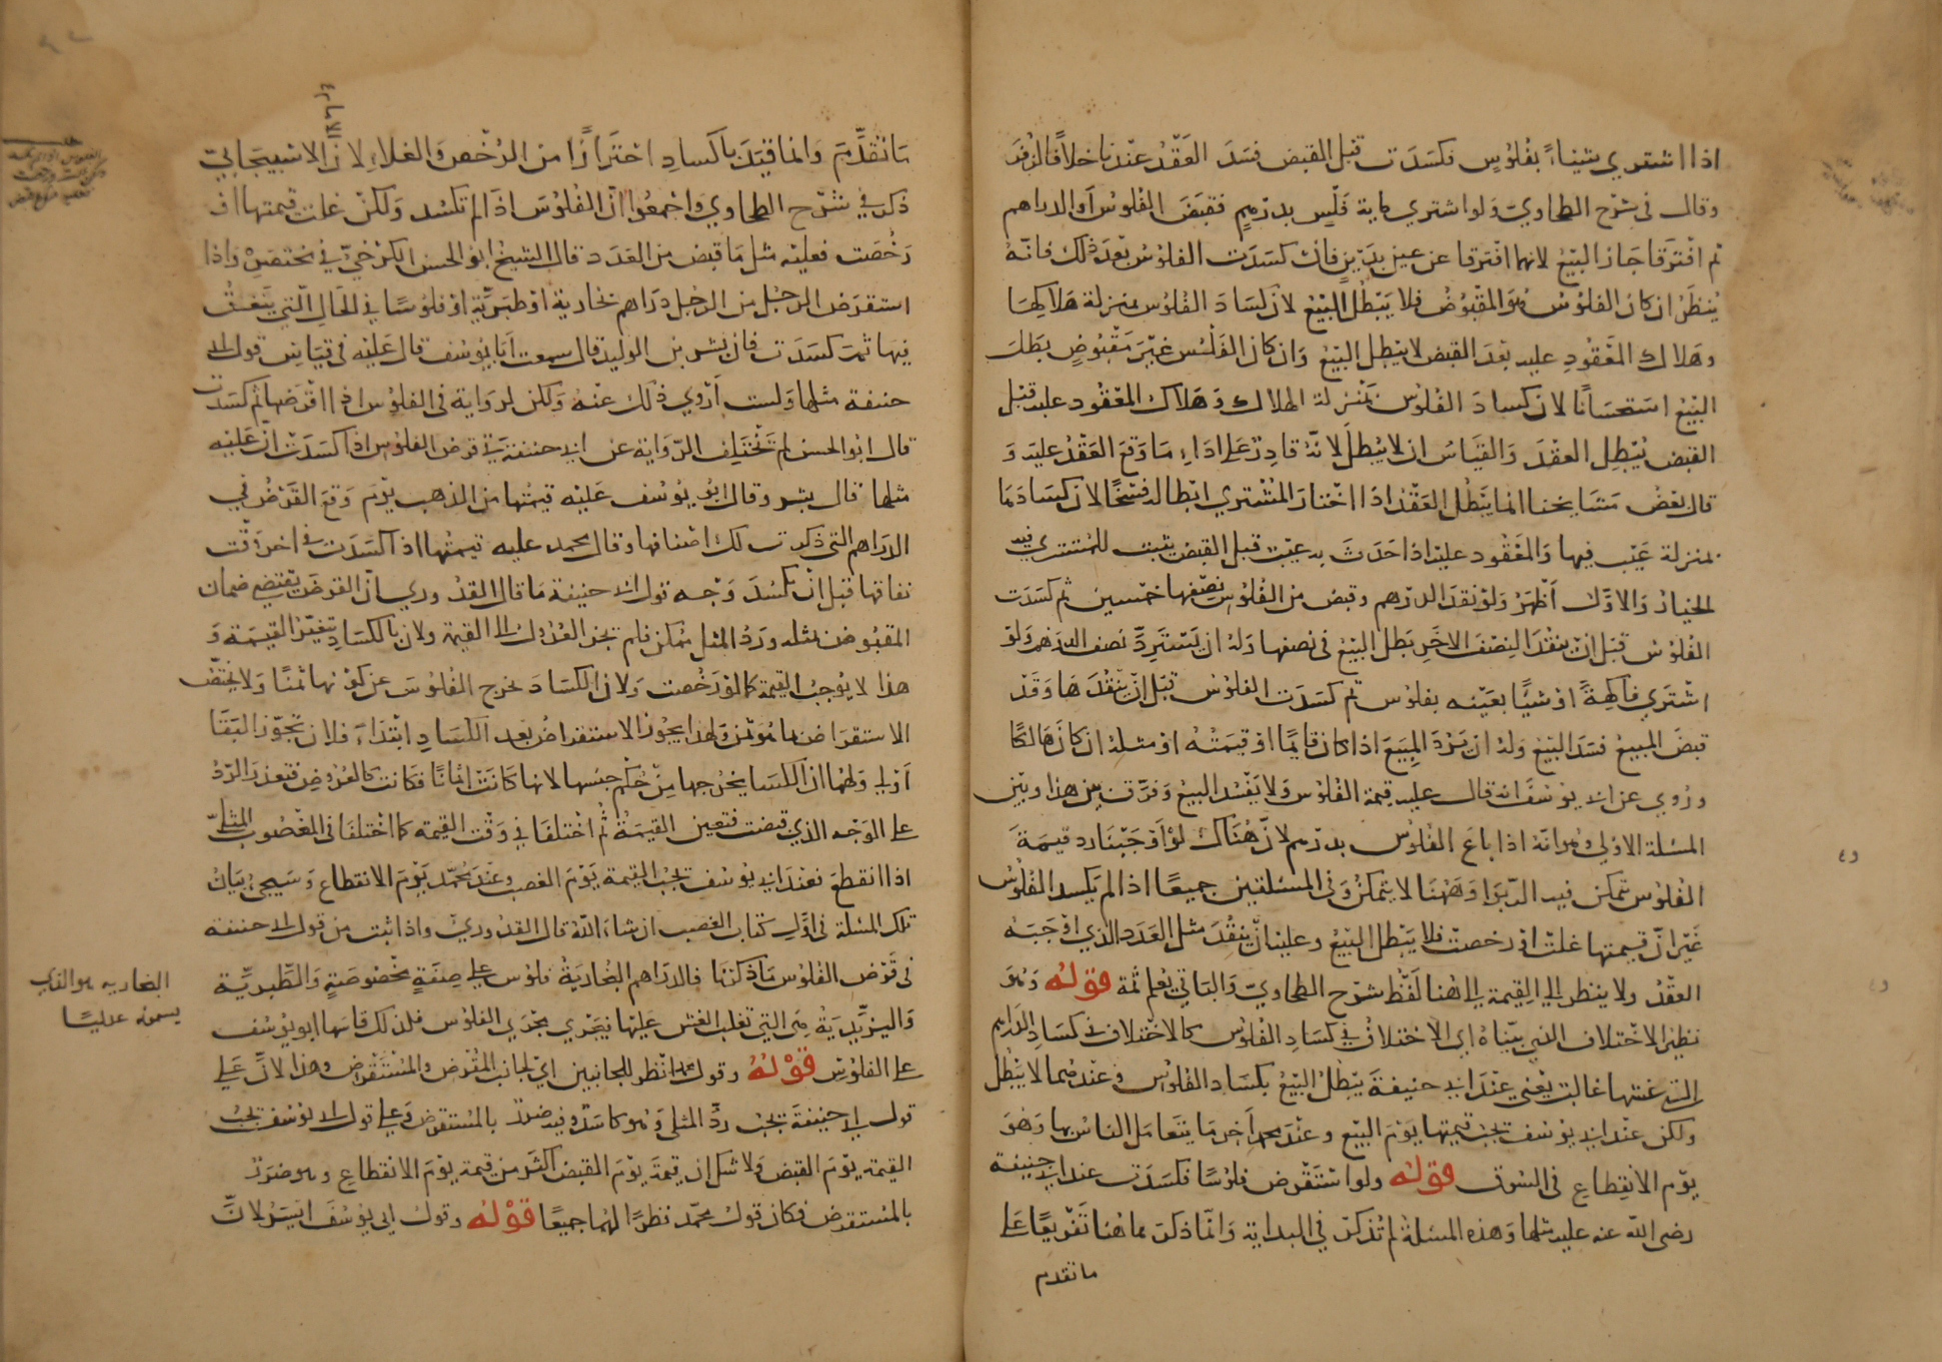 اذا اشترى شيئاً بفلوس فكسدت قبل القبض فسد العقد عندنا خلافا لزفر
وقال فى شرح الطحاوي ولو اشترى مائة فلس بدرهم فقبض الفلوس أو الدراهم
ثم افترقا جاز البيع لانهما افترقا عن عين بدين فان كسدت الفلوس بعد ذلك فانه
ينظر ان كان الفلوس هو المقبوض فلا يبطل البيع لان كساد الفلوس بمنزلة هلاكها
وهلاك المعقود عليه بعد القبض لا يبطل البيع وان كان الفلس غير مقبوض بطل
البيع استحسانا لان كساد الفلوس بمنزلة الهلاك وهلاك المعقود عليه قبل
القبض يبطل العقد والقياس ان لا يبطل لانه قادر على اداء ما وقع العقد عليه و
قال بعض مشايخنا انما يبطل العقد اذا اختار المشتري ابطاله فسخا لان كسادها
بمنزلة عيب فيها والمعقود عليه اذا حدث به عيب قبل القبض يثبت للمشتري فيه
الخيار والاول أظهر ولو نقد الدرهم وقبض من الفلوس نصفها خمسين ثم كسدت
الفلوس قبل ان ينقد النصف الاخر بطل البيع فى نصفها وله ان يسترد نصف الدرهم ولو
اشترى فاكهة او شيئا بعينه بفلوس ثم كسدت الفلوس قبل ان ينقدها وقد
قبض المبيع فسد البيع وله ان يرد المبيع اذا كان قائما او قيمته او مثله ان كان هالكا
وروي عن ابى يوسف انه قال عليه قيمة الفلوس ولا يفسد البيع وفرق بين هذا وبين
المسئلة الاولى وهو انه اذا باع الفلوس بدرهم لان هناك لو أوجبنا رد قيمة
الفلوس تمكن فيه الربوا وههنا لا يتمكن وفى المسئلتين جميعا اذا لم يكسد الفلوس
غير ان قيمتها غلت او رخصت فلا يبطل البيع وعليه ان ينقد مثل العدد الذي اوجبه
العقد ولا ينظر الى القيمة الى هنا لفظ شرح الطحاوي والباقي يعلم ثمة قوله وهو
نظير الاختلاف الذي بيناه اي الاختلاف فى كساد الفلوس كالاختلاف فى كساد الدراهم
التى غشها غالب يعني عند ابى حنيفة يبطل البيع بكساد الفلوس وعندهما لا يبطل
ولكن عند ابى يوسف تجب قيمتها يوم البيع وعند محمد آخر ما يتعامل الناس بها وهو
يوم الانقطاع فى السوق قوله ولو استقرض فلوسا فكسدت عند ابى حنيفة
رضى الله عنه عليه مثلها وهذه المسئلة لم تذكر فى البداية وانما ذكرت هاهنا تفريعا على
ما تقدم
ما تقدم وانما قيد بالكساد احترازا من الرخص والغلاء لان الاسبيجابي
ذكر فى شرح الطحاوي واجمعوا ان الفلوس اذا لم تكسد ولكن غلت قيمتها او
رخصت فعليه مثل ما قبض من العدد قال الشيخ ابو الحسن الكرخي فى مختصره واذا
استقرض الرجل من الرجل دراهم بخارية او طبرية او فلوسا فى الحال التي ينفق
فيها ثمت كسدت فان بشر بن الوليد قال سمعت أبا يوسف قال عليه فى قياس قول ابى
حنيفة مثلها ولست أروي ذلك عنه ولكن لرواية فى الفلوس اذا اقرضها ثم كسدت
قال ابو الحسن لم تختلف الرواية عن ابى حنيفة فى قرض الفلوس اذا كسدت ان عليه
مثلها قال بشر وقال ابو يوسف عليه قيمتها من الذهب يوم وقع القرض فى
الدراهم التى ذكرت لك اصنافها وقال محمد عليه قيمتها اذا كسدت فى اخر وقت
نفاقها قبل ان تكسد وجه قول ابى حنيفة ما قال القدوري ان القرض يقتضي ضمان
المقبوض بمثله ورد المثل ممكن فلم يجز العدول الى القيمة ولان بالكساد تتغير القيمة و
هذا لا يوجب القيمة كما لو رخصت ولان الكساد يخرج الفلوس عن كونها ثمنا ولا يختص
الاستقراض بما هو ثمن ولهذا يجوز الاستقراض بعد الكساد ابتداء فلان تجوز البقا
أولى ولهما ان الكساد يخرجها من حكم جنسها لانها كانت اثمانا فكانت كالعروض فتعذر الرد
على الوجه الذي قبضت فتعين القيمة ثم اختلفا فى وقت القيمة كما اختلفا فى المغصوب المثلى
اذا انقطع فعند ابى يوسف تجب القيمة يوم الغصب وعند محمد يوم الانقطاع وسيجيء بيان
تلك المسئلة فى اول كتاب الغصب ان شاء الله قال القدوري واذا ثبت من قول ابى حنيفة
فى قرض الفلوس ما ذكرنا فالدراهم البخارية فلوس على صفة مخصوصة والطبرية
واليزيدية هى التي تغلب الغش عليها فيجري مجري الفلوس فلذلك قاسها ابو يوسف
على الفلوس قوله وقول محمد انظر للجانبين اي لجانب المقرض والمستقرض وهذا لان على
قول ابى حنيفة تجب رد المثلى وهو كاسد وفيه ضرر بالمستقرض وعلى قول ابى يوسف تجب
القيمة يوم القبض ولا شك ان قيمة يوم القبض اكثر من قيمة يوم الانقطاع وهو ضرر
بالمستقرض فكان قول محمد نظرا لهما جميعا قوله وقول ابى يوسف ايسر لان
البخاريه هو الذي
يسمونه عدليا